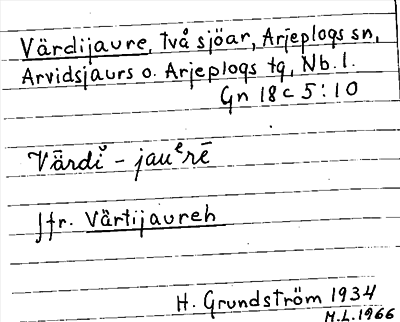 Värdijaure, två sjöar, Arjeplogs sn,
Arvidsjaurs o. Arjeplogs tg, Nb. l.
Gn 18 c 5:10
Värdĭ - jauᵉrē
Jfr. Värtijaureh
H. Grundström 1934
M.L. 1966